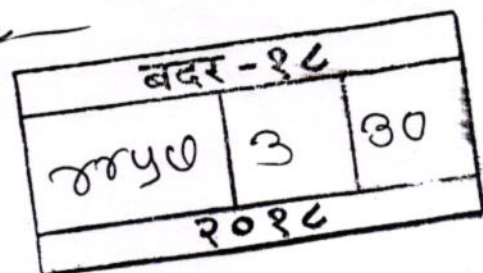 बदर-१८
४४५७ ३ ३०
२०१८